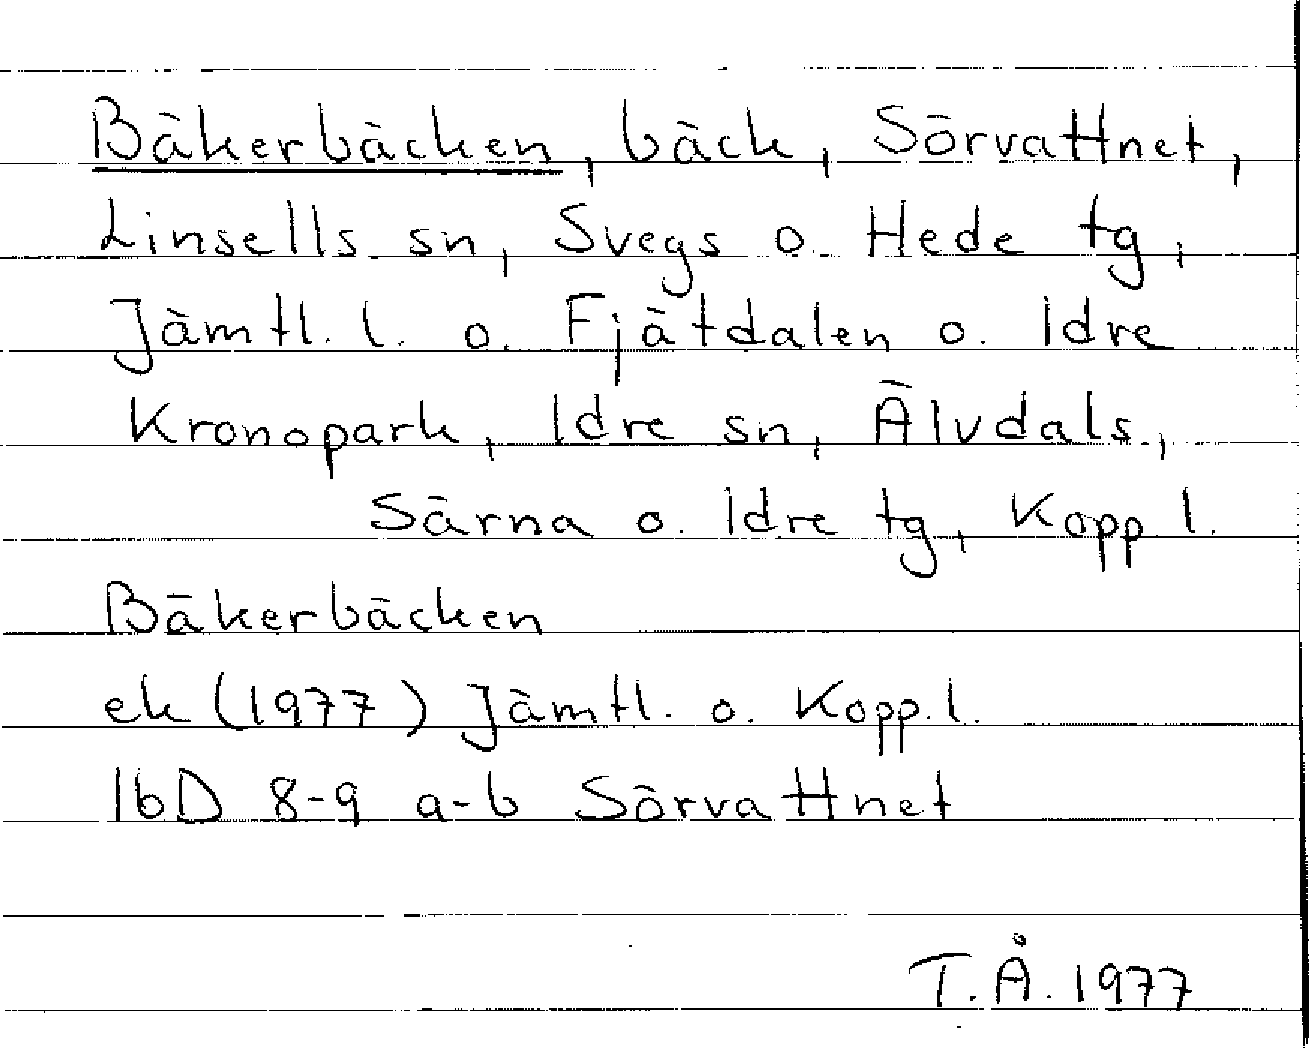 Bäkerbäcken, bäck, Sörvattnet,
Linsells sn, Svegs o. Hede tg,
Jämtl. l. o. Fjätdalen o. Idre
Kronopark, Idre sn, Älvdals,
Särna o. Idre tg, Kopp l.
Bäkerbäcken
ek (1977) Jämtl. o. Kopp. l.
16D 8-9 a-b Sörvattnet
T.Å. 1977